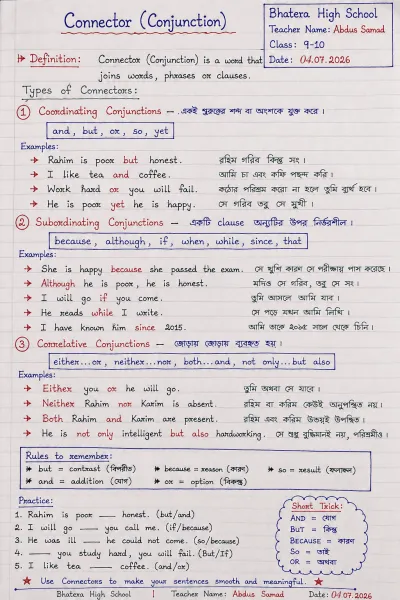 Connector (Conjunction)
Bhatera High School
Teacher Name: Abdus Samad
Class: 9-10
Date: 04.07.2026
Definition: Connector (Conjunction) is a word that
joins words, phrases or clauses.
Types of Connectors:
1 Coordinating Conjunctions – একই গুরুত্বের শব্দ বা অংশকে যুক্ত করে।
and, but, or, so, yet
Examples:
→ Rahim is poor but honest. রহিম গরিব কিন্তু সৎ।
→ I like tea and coffee. আমি চা এবং কফি পছন্দ করি।
→ Work hard or you will fail. কঠোর পরিশ্রম করো না হলে তুমি ব্যর্থ হবে।
→ He is poor yet he is happy. সে গরিব তবু সে সুখী।
2 Subordinating Conjunctions – একটি clause অন্যটির উপর নির্ভরশীল।
because, although, if, when, while, since, that
Examples:
→ She is happy because she passed the exam. সে খুশি কারণ সে পরীক্ষায় পাস করেছে।
→ Although he is poor, he is honest. যদিও সে গরিব, তবু সে সৎ।
→ I will go if you come. তুমি আসলে আমি যাব।
→ He reads while I write. সে পড়ে যখন আমি লিখি।
→ I have known him since 2015. আমি তাকে ২০১৫ সাল থেকে চিনি।
3 Correlative Conjunctions – জোড়ায় জোড়ায় ব্যবহৃত হয়।
either...or, neither...nor, both...and, not only...but also
Examples:
→ Either you or he will go. তুমি অথবা সে যাবে।
→ Neither Rahim nor Karim is absent. রহিম বা করিম কেউই অনুপস্থিত নয়।
→ Both Rahim and Karim are present. রহিম এবং করিম উভয়ই উপস্থিত।
→ He is not only intelligent but also hardworking. সে শুধু বুদ্ধিমানই নয়, পরিশ্রমীও।
Rules to remember:
» but = contrast (বিপরীত) » because = reason (কারণ) » so = result (ফলাফল)
» and = addition (যোগ) » or = option (বিকল্প)
Practice:
1. Rahim is poor ___ honest. (but/and)
2. I will go ___ you call me. (if/because)
3. He was ill ___ he could not come. (so/because)
4. ___ you study hard, you will fail. (But/If)
5. I like tea ___ coffee. (and/or)
Short Trick:
AND = যোগ
BUT = কিন্তু
BECAUSE = কারণ
So = তাই
OR = অথবা
★ Use Connectors to make your sentences smooth and meaningful. ★
Bhatera High School | Teacher Name: Abdus Samad Date: 04.07.2026